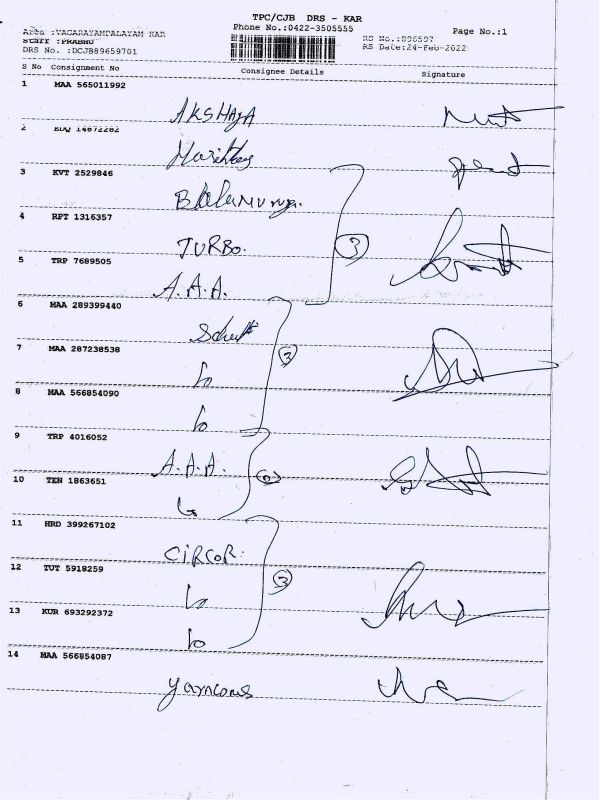 TPC/CJB DRS - KAR
Phone No.:0422-3505555
Page No.:1
Area :VAGARAYAMPALAYAM KAR
Staff :PRABHU
DRS No. :DCJB89659701
RS No.:896597
RS Date:24-Feb-2022
S No Consignment No Consignee Details Signature
1 MAA 565011992
AKSHAYA
2 14672282
3 KVT 2529846
4 RPT 1316357
TURBO.
3
5 TRP 7689505
A.A.A.
6 MAA 289399440
7 MAA 287238538
3
8 MAA 566854090
9 TRP 4016052
A.A.A.
10 TEN 1863651
11 HRD 399267102
CIRCOR.
12 TUT 5918259
3
13 KUR 693292372
14 MAA 566854087
Yarncoms